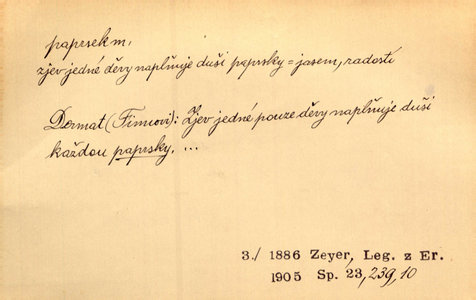 paprsek m.
zjev jedné děvy naplňuje duši paprsky = jasem, radostí
Dermat (Finnovi): Zjev jedné pouze děvy naplňuje duši
každou paprsky, ...
3./ 1886 Zeyer, Leg. z Er.
1905 Sp. 23, 239, 10